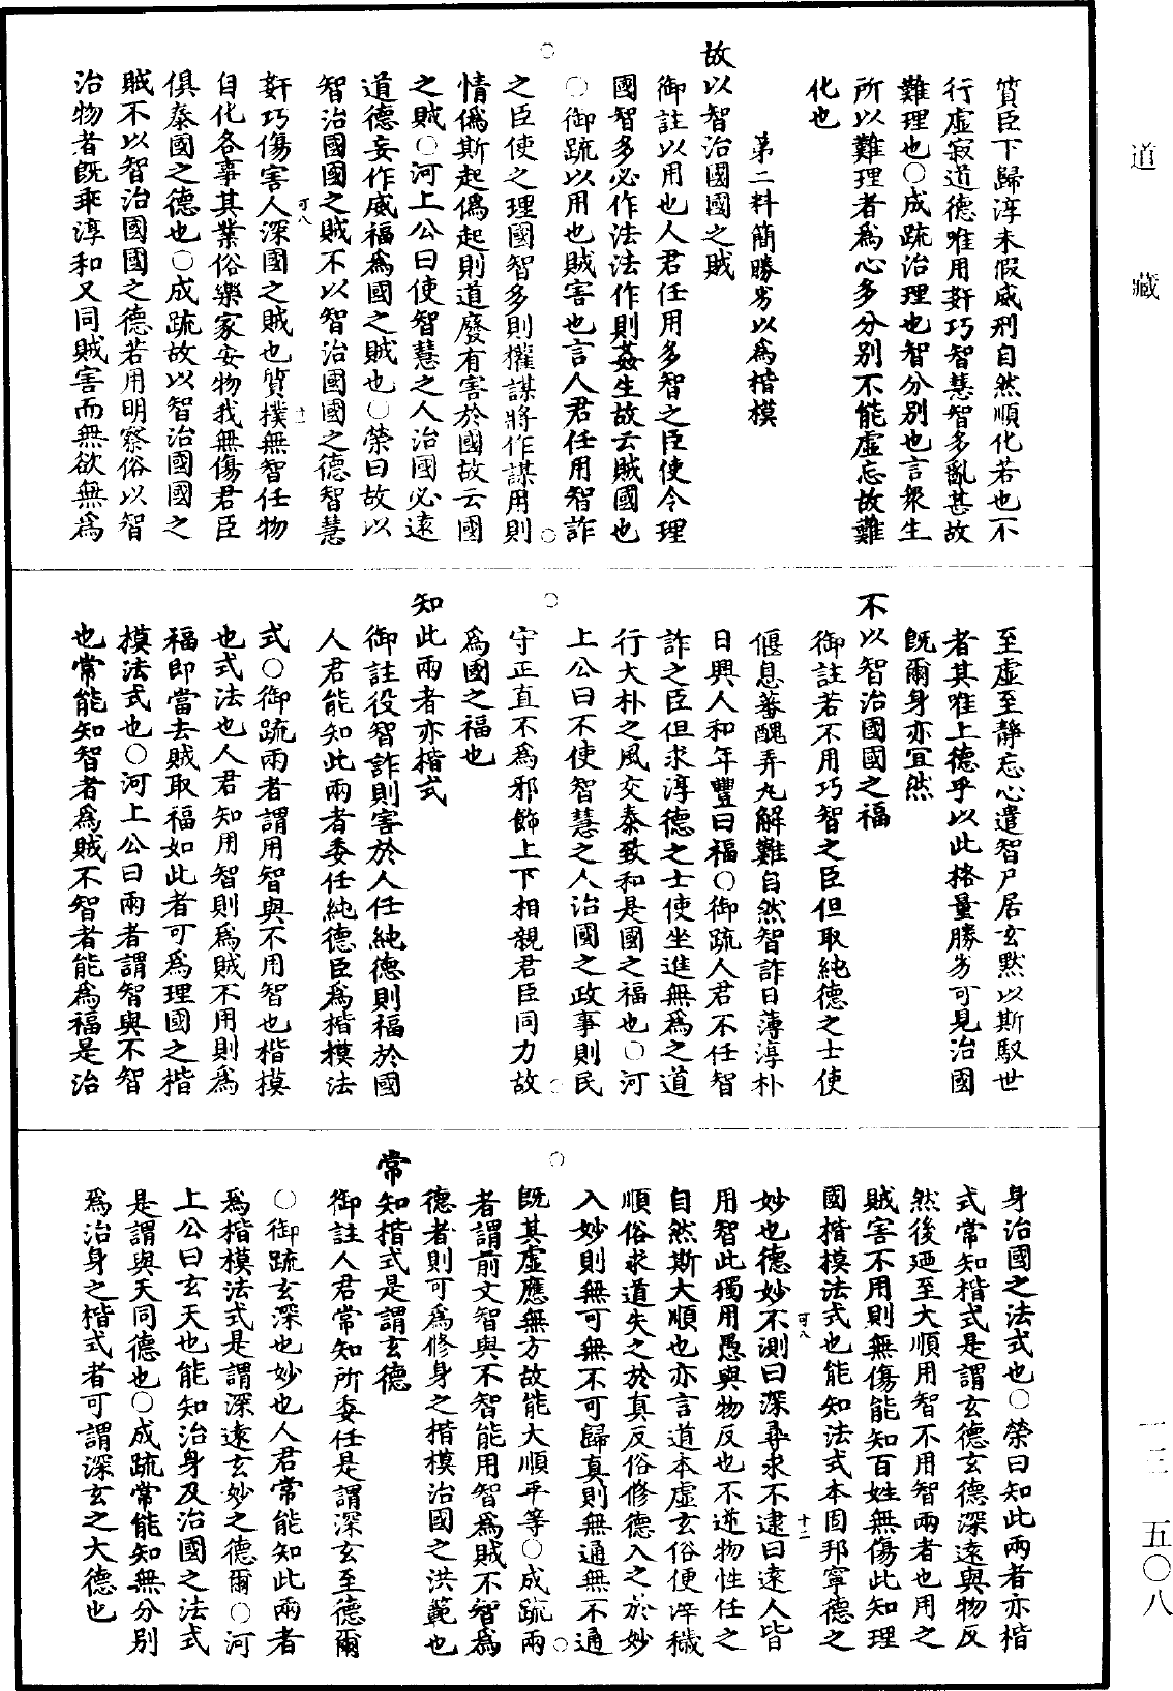 道藏
質臣下歸淳未假威刑自然順化若也不
行虛寂道德唯用姧巧智慧智多亂甚故
難理也○成疏治理也智分別也言衆生
所以難理者為心多分別不能虛忘故難
化也
第二料簡勝劣以為楷模
故以智治國國之賊
御註以用也人君任用多智之臣使令理
國智多必作法法作則姦生故云賊國也
○御疏以用也賊害也言人君任用智詐
之臣使之理國智多則權謀將作謀用則
情偽斯起偽起則道廢有害於國故云國
之賊○河上公曰使智慧之人治國必遠
道德妄作威福為國之賊也○榮曰故以
智治國國之賊不以智治國國之德智慧
可八
十一
姧巧傷害人深國之賊也質樸無智任物
自化各事其業俗樂家安物我無傷君臣
俱泰國之德也○成疏故以智治國國之
賊不以智治國國之德若用明察俗以智
治物者既乖淳和又同賊害而無欲無為
至虛至靜忘心遣智尸居玄默以斯馭世
者其唯上德乎以此格量勝劣可見治國
既爾身亦宜然
不以智治國國之福
御註若不用巧智之臣但取純德之士使
偃息蕃醜弄丸解難自然智詐日薄淳朴
日興人和年豐曰福○御疏人君不任智
詐之臣但求淳德之士使坐進無為之道
行大朴之風交泰致和是國之福也○河
上公曰不使智慧之人治國之政事則民
守正直不為邪飾上下相親君臣同力故
為國之福也
知此兩者亦楷式
御註役智詐則害於人任純德則福於國
人君能知此兩者委任純德臣為楷模法
式○御疏兩者謂用智與不用智也楷模
也式法也人君知用智則為賊不用則為
福即當去賊取福如此者可為理國之楷
模法式也○河上公曰兩者謂智與不智
也常能知智者為賊不智者能為福是治
身治國之法式也○榮曰知此兩者亦楷
式常知楷式是謂玄德玄德深遠與物反
然後廼至大順用智不用智兩者也用之
賊害不用則無傷能知百姓無傷此知理
國楷模法式也能知法式本固邦寧德之
可八
十二
妙也德妙不測曰深尋求不逮曰遠人皆
用智此獨用愚與物反也不逆物性任之
自然斯大順也亦言道本虛玄俗便滓穢
順俗求道失之於真反俗修德入之於妙
入妙則無可無不可歸真則無通無不通
既其虛應無方故能大順平等○成疏兩
者謂前文智與不智能用智為賊不智為
德者則可為修身之楷模治國之洪範也
常知楷式是謂玄德
御註人君常知所委任是謂深玄至德爾
○御疏玄深也妙也人君常能知此兩者
為楷模法式是謂深遠玄妙之德爾○河
上公曰玄天也能知治身及治國之法式
是謂與天同德也○成疏常能知無分別
為治身之楷式者可謂深玄之大德也
一三
五〇八